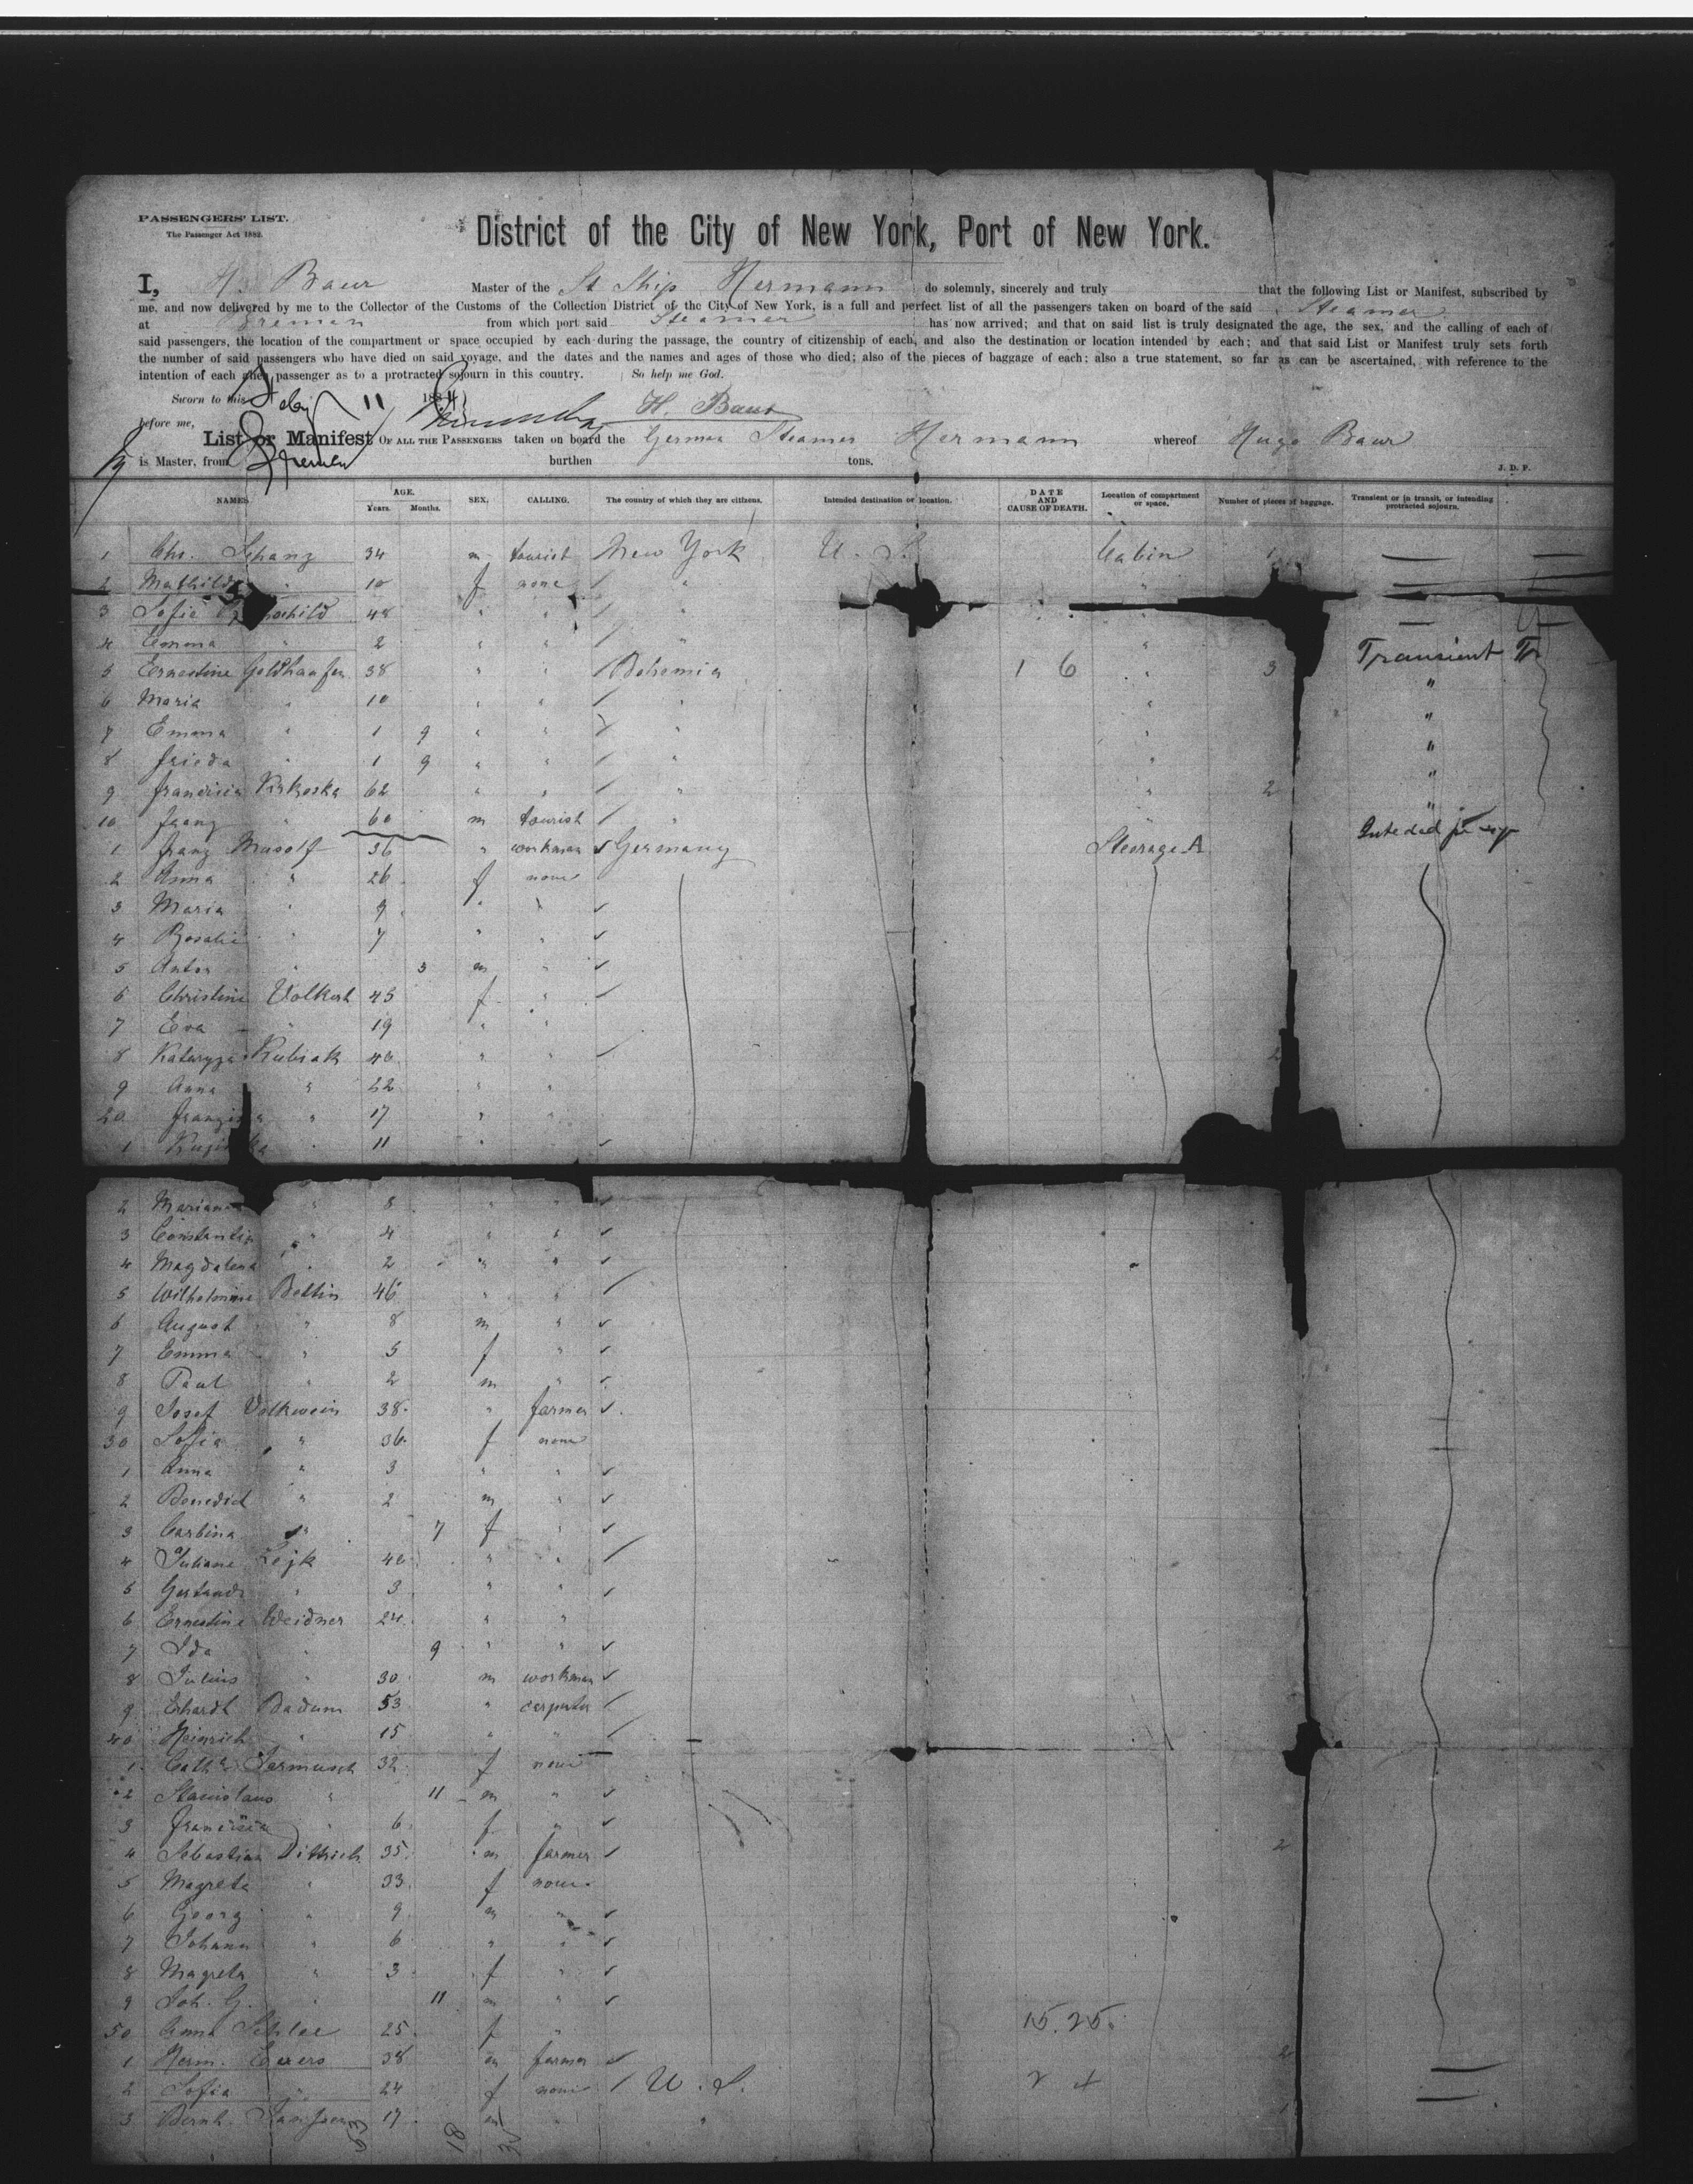 PASSENGERS' LIST.
The Passenger Act 1882.
District of the City of New York, Port of New York.
I, H. Baur Master of the St Ship Hermann do solemnly, sincerely and truly that the following List or Manifest, subscribed by
me, and now delivered by me to the Collector of the Customs of the Collection District of the City of New York, is a full and perfect list of all the passengers taken on board of the said Steamer
at Bremen from which port said Steamer has now arrived; and that on said list is truly designated the age, the sex, and the calling of each of
said passengers, the location of the compartment or space occupied by each during the passage, the country of citizenship of each, and also the destination or location intended by each; and that said List or Manifest truly sets forth
the number of said passengers who have died on said voyage, and the dates and the names and ages of those who died; also of the pieces of baggage of each; also a true statement, so far as can be ascertained, with reference to the
intention of each alien passenger as to a protracted sojourn in this country. So help me God.
Sworn to this Feby 11 1884
before me, H. Baur
List or Manifest OF ALL THE PASSENGERS taken on board the German Steamer Hermann whereof Hugo Baur
is Master, from Bremen burthen tons.
J. D. P.
NAMES. AGE. Years. Months. SEX. CALLING. The country of which they are citizens. Intended destination or location. DATE AND CAUSE OF DEATH. Location of compartment or space. Number of pieces of baggage. Transient or in transit, or intending protracted sojourn.
1 Chs. Schanz 34 m tourist New York U. S. Cabin 1
2 Mathilde " 10 f none / "
3 Sofia 48 " " / "
4 Emma " 2 " " / " "
5 Ernestine 38 " " / Bohemia 1 6 " 3 Transient Tr
6 Maria " 10 " " / " " "
7 Emma " 1 9 " " " " "
8 Frieda " 1 9 " " / " " "
9 62 " " / " " 2 "
10 Franz " 60 m tourist / " " "
1 Franz Musolf 36 " workman ✓ Germany Steerage A
2 Anna " 26 f none
3 Maria " 9 " " ✓
4 Rosalie " 7 " " ✓
5 Anton " 3 m " ✓
6 Christine Volkert 45 f " ✓
7 Eva " 19 " "
8 Kubiak 46 " " ✓ 2
9 Anna " 22 " "
20 " 17 " "
1 " 11 " ✓
2 Marianna " 8 " " ✓
3 Constantia " 4 " " ✓
4 Magdalena " 2 " " ✓
5 Wilhelmine Bettin 46 " " /
6 August " 8 m " ✓
7 Emma " 5 f " ✓
8 Paul " 2 m " ✓
9 Josef Volkwein 38 " farmer ✓
30 Sofia " 36 f none
1 Anna " 3 " " ✓
2 Benedict " 2 m " ✓
3 Carbina " 7 f " ✓
4 Juliane Lejk 42 " " /
5 " 3 " " ✓
6 Ernestine Weidner 24 " "
7 Ida " 9 " " ✓
8 Julius " 30 m workman ✓
9 Erhardt Badum 53 " carpenter /
40 Heinrich " 15 " " /
1 32 f none
2 Stanislaus " 11 m " ✓
3 Francisca " 6 f " ✓
4 Sebastian Dittrich 35 m farmer ✓ 2
5 Magreta " 33 f none
6 Georg " 9 m " ✓
7 Johann " 6 " " ✓
8 Magreta " 3 f " ✓
9 Joh. G. " 11 m " ✓
50 Anna Schlee 25 f " 15. 25.
1 Herm. Evers 38 m farmer ✓ 2
2 Sofia " 24 f none / U. S.
3 Bernh. 17 m " " 1
53 18 35